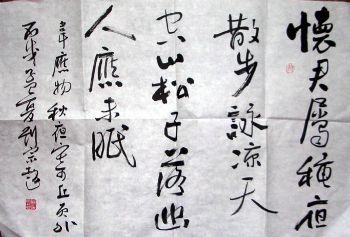 懷君屬秋夜
散步詠涼天
空山松子落幽
人應未眠
韋應物秋夜寄丘員外
夏劉宗